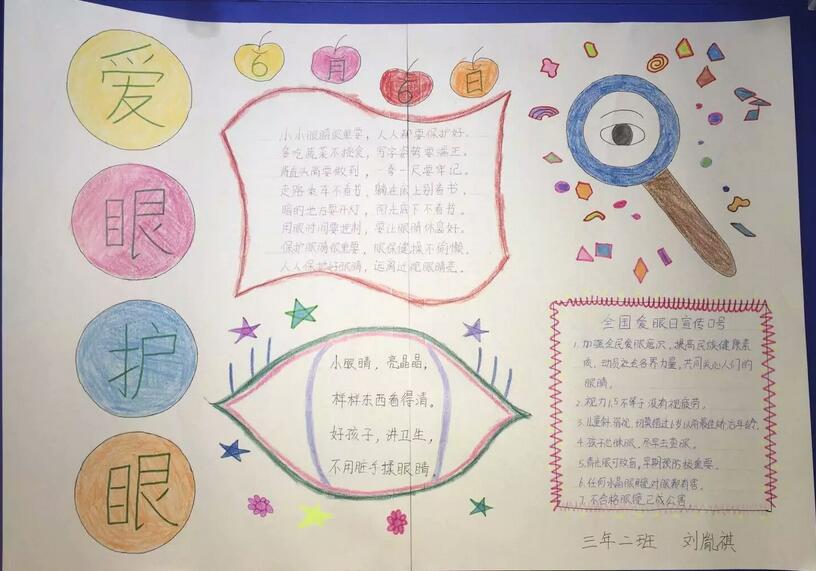 爱
眼
护
眼
6 月 6 日
小小眼睛很重要，人人都要保护好。
多吃蔬菜不挑食，写字姿势要端正。
肩直头高要做到，一拳一尺要牢记。
走路乘车不看书，躺在床上别看书。
暗的地方要开灯，阳光底下不看书。
用眼时间要控制，要让眼睛休息好。
保护眼睛很重要，眼保健操不偷懒。
人人保护好眼睛，远离近视眼睛亮。
小眼睛，亮晶晶，
样样东西看得清。
好孩子，讲卫生，
不用脏手揉眼睛
全国爱眼日宣传口号
1. 加强全民爱眼意识，提高民族健康素
质，动员社会各界力量，共同关心人们的
眼睛。
2. 视力1.5不等于没有视疲劳。
3. 儿童斜、弱视，切莫错过6岁以前最佳矫治年龄。
4. 孩子也眯眼，尽早去查眼。
5. 青光眼可致盲，早期预防极重要。
6. 任何水晶眼镜对眼都有害。
7. 不合格眼镜已成公害。
三年二班 刘胤祺